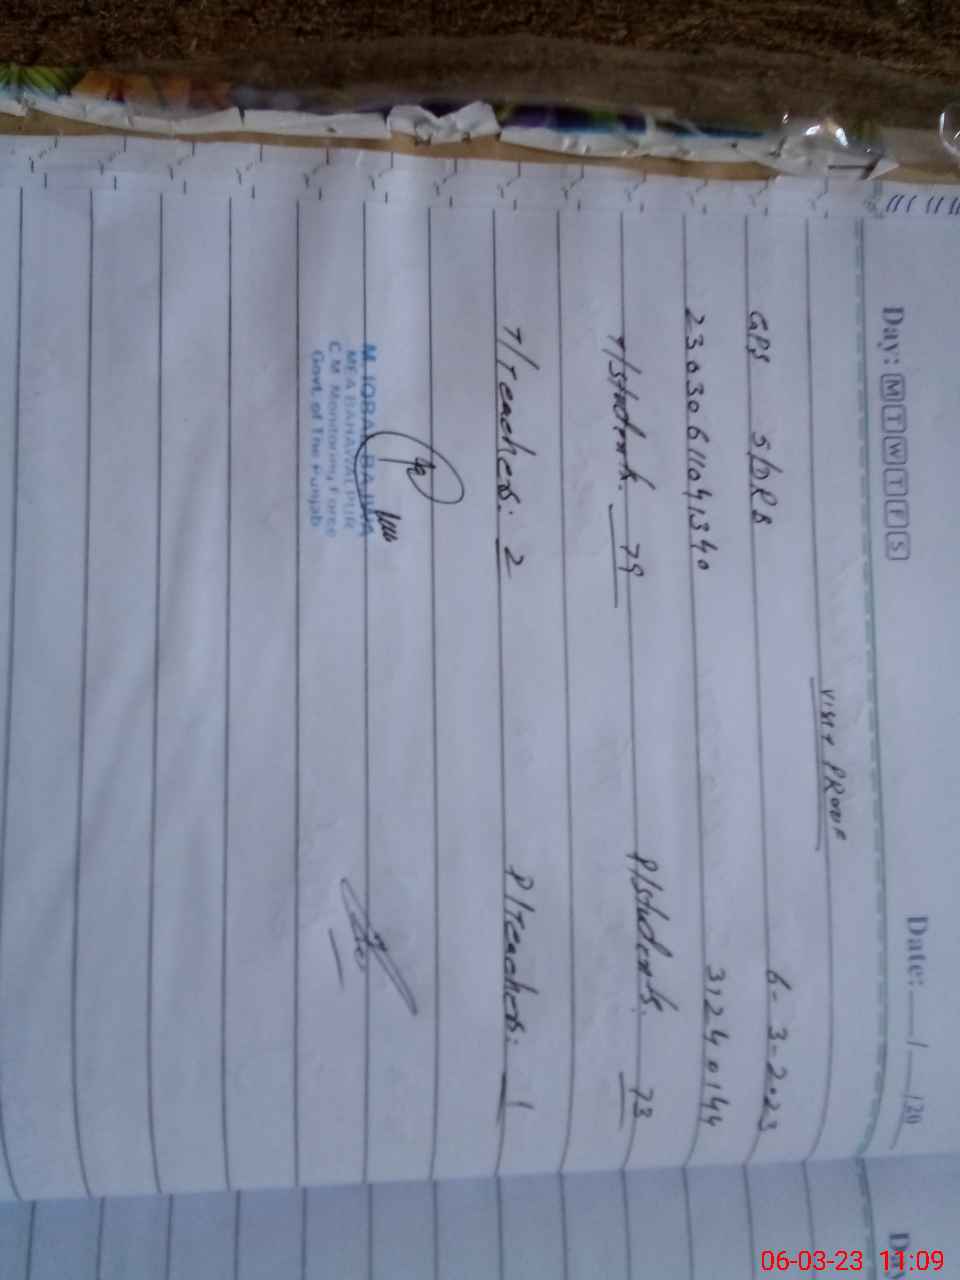 Day: M T W T F S Date: __/__/20
VISIT PROOF
GPS 5/DRB 6-3-2023
2303061104 1340 31240144
T/students. 79 P/students. 73
T/Teachers: 2 P/Teachers: 1
M. IQBAL BAJWA
MEA BAHAWALPUR
C.M. Monitoring Force
Govt. of The Punjab
Day
06-03-23 11:09